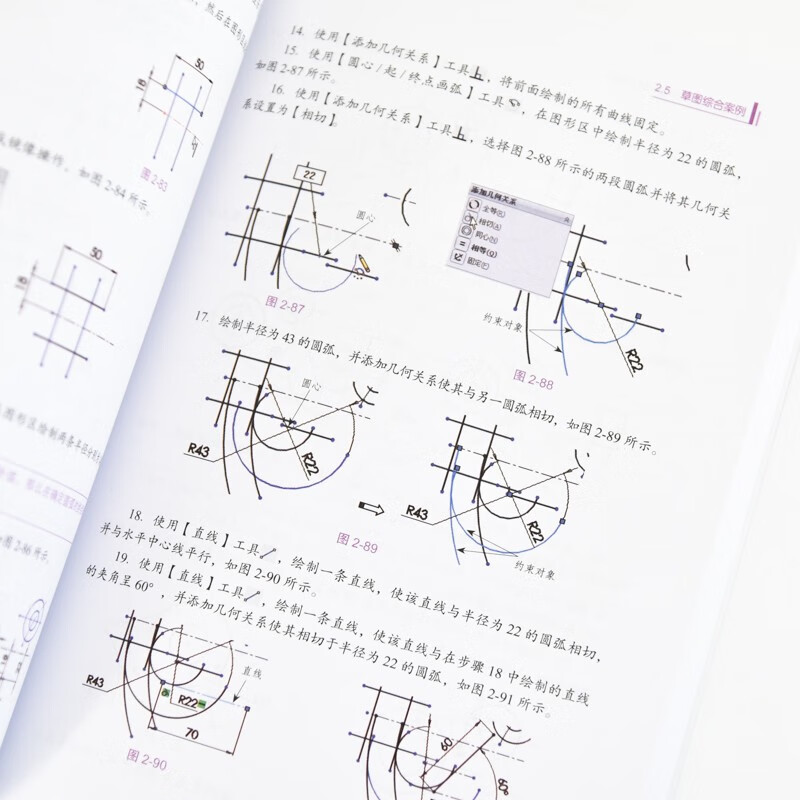 ，然后在图形
50
18
图 2-83
镜像操作，如图 2-84 所示。
50
18
图形区绘制两条半径分别
图 2-86 所示。
2.5 草图综合案例
14. 使用【添加几何关系】工具，将前面绘制的所有曲线固定。
15. 使用【圆心/起/终点画弧】工具，在图形区中绘制半径为 22 的圆弧，
如图 2-87 所示。
16. 使用【添加几何关系】工具，选择图 2-88 所示的两段圆弧并将其几何关
系设置为【相切】。
22
圆心
图 2-87
添加几何关系
全等(R)
相切(A)
同心(N)
相等(Q)
固定(F)
约束对象
R22
图 2-88
17. 绘制半径为 43 的圆弧，并添加几何关系使其与另一圆弧相切，如图 2-89 所示。
圆心
R43
R22
R43
R22
约束对象
图 2-89
18. 使用【直线】工具，绘制一条直线，使该直线与半径为 22 的圆弧相切，
并与水平中心线平行，如图 2-90 所示。
19. 使用【直线】工具，绘制一条直线，使该直线与在步骤 18 中绘制的直线
的夹角呈 60°，并添加几何关系使其相切于半径为 22 的圆弧，如图 2-91 所示。
R43
直线
R22
70
图 2-90
60